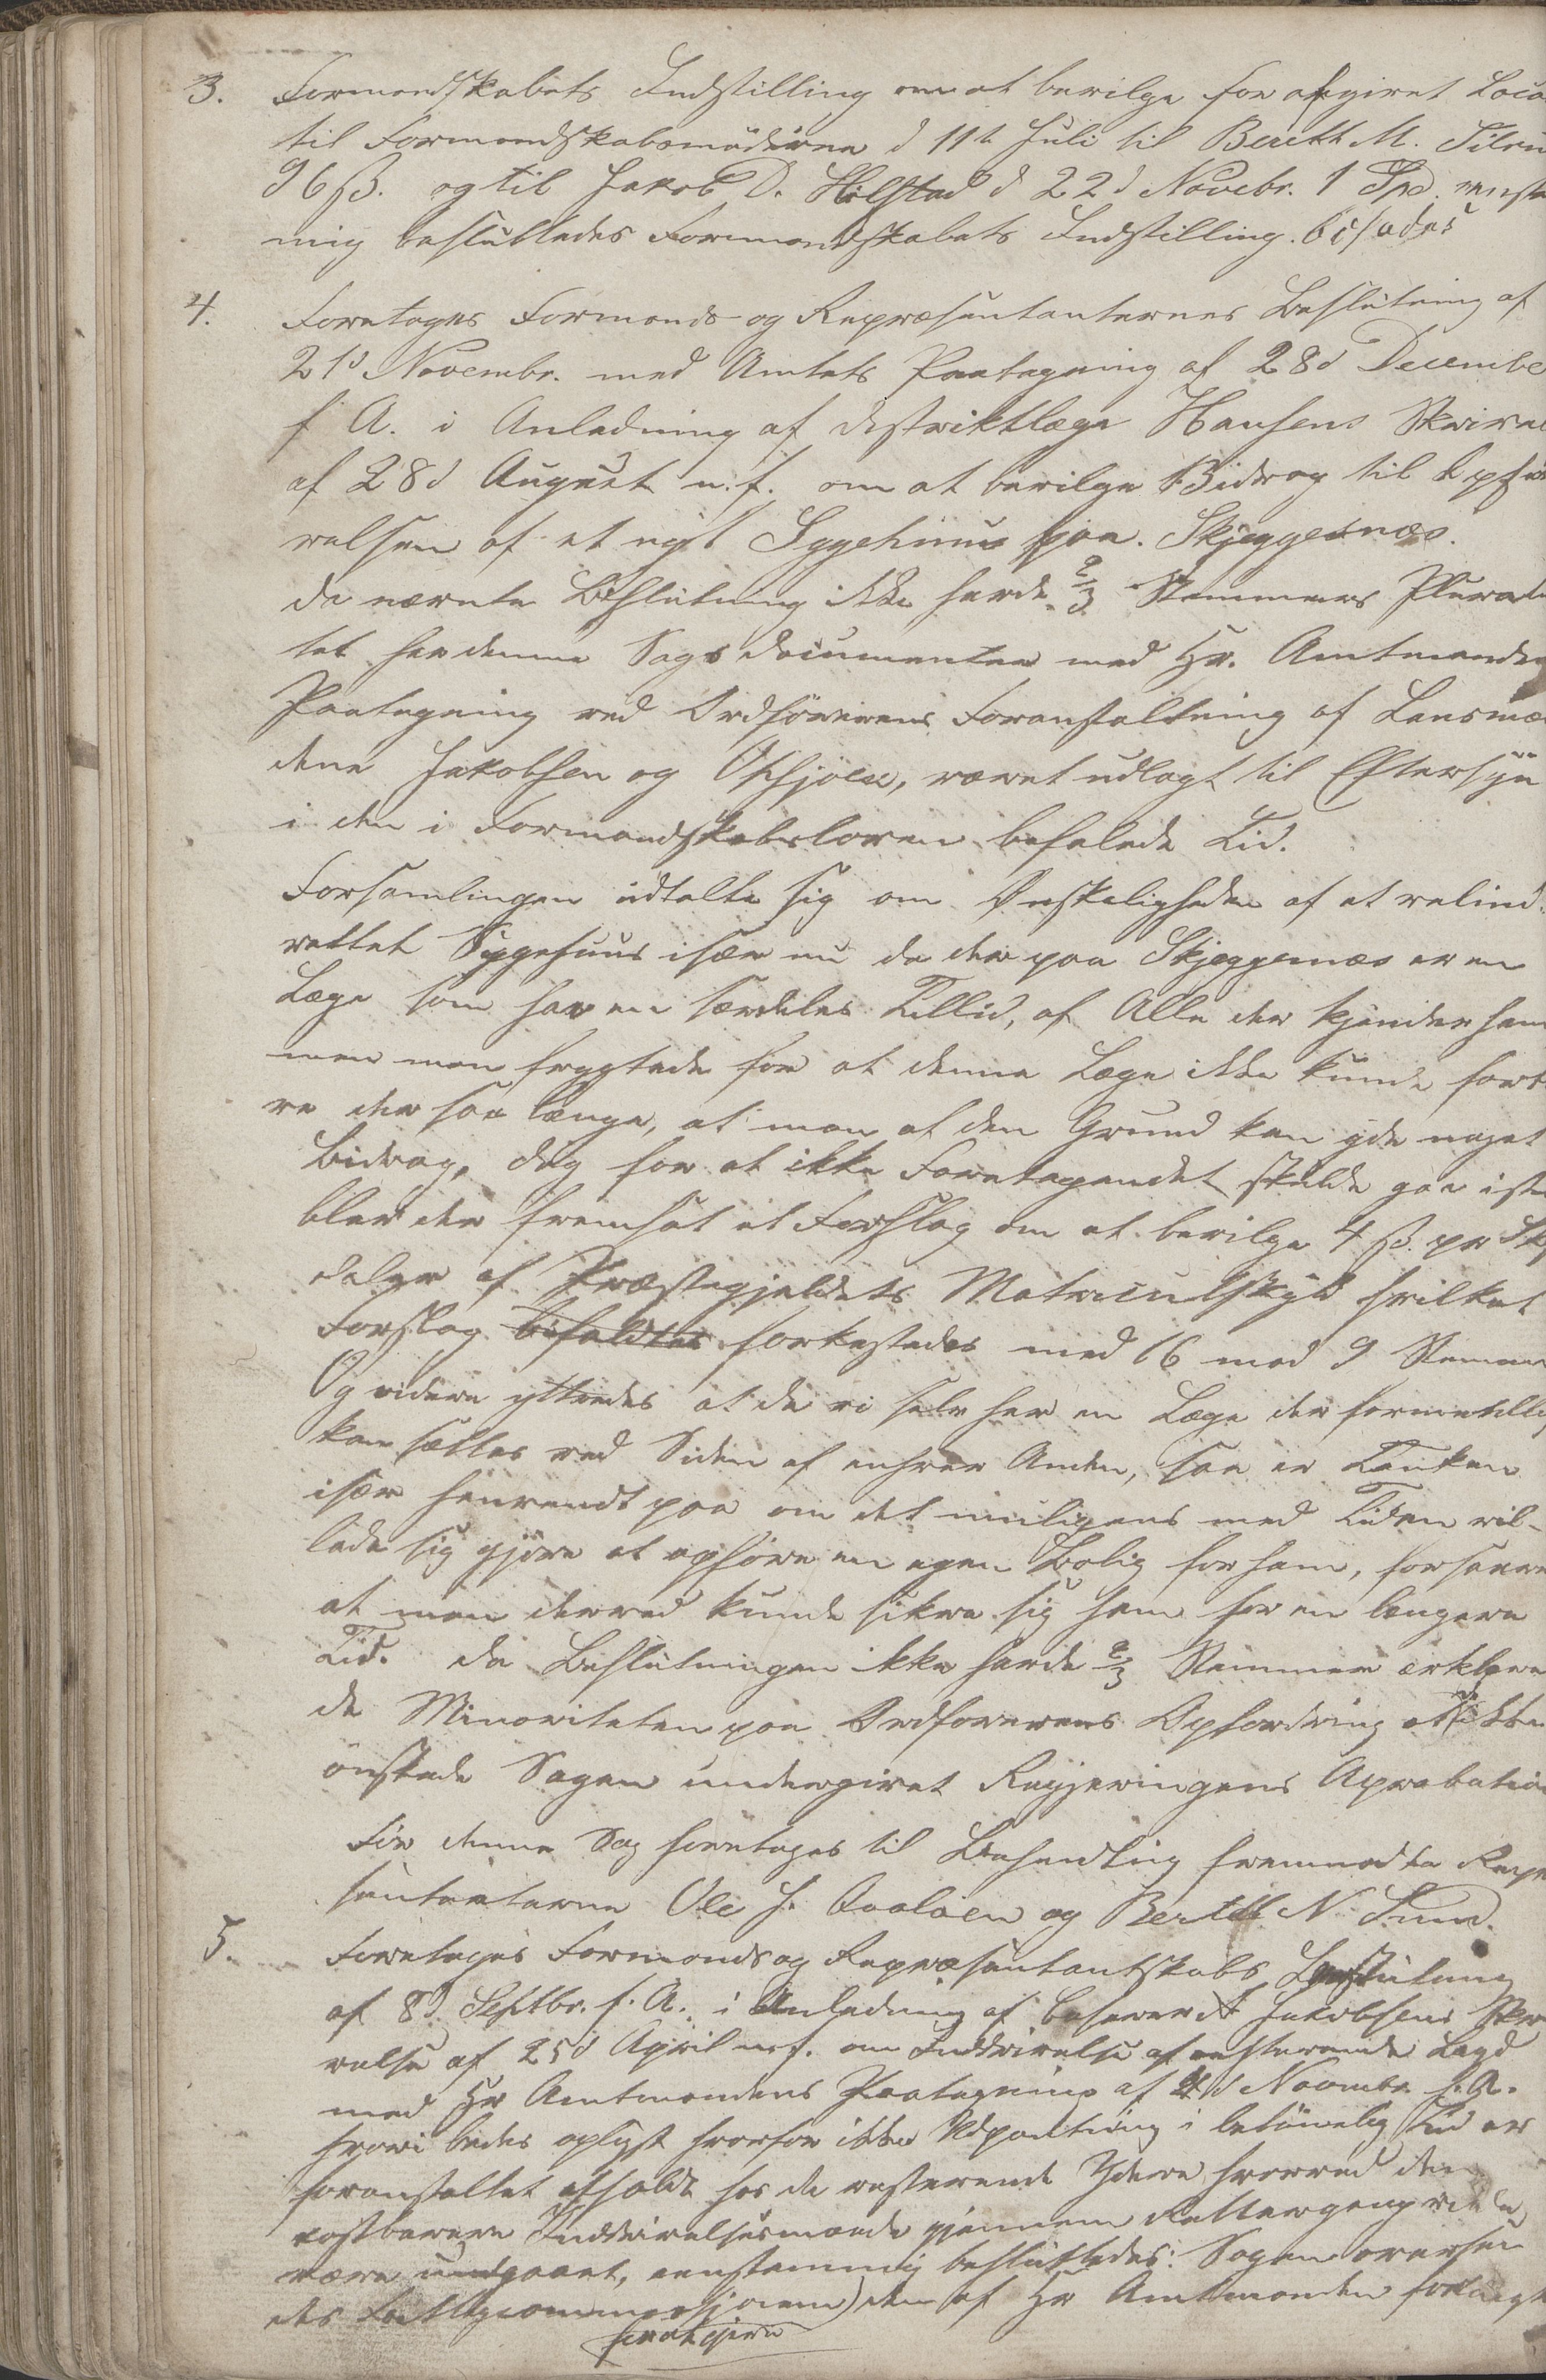 3. Formandskabets Indstilling om at bevilge for afgivet Loca
til Formandskabsmøderne d 11te Juli til Berett M.
96 ß. og til Jakob D. Hilstad d 22d Novebr. 1 Spd. enste
mig besluttedes Formandskabets Indstilling. bifaldes
4. Foretoges Formands- og Repræsentanternes Beslutning af
21d Novembr. med Amtets Paategning af 28d Decembe
f A. i Anledning af Distriktlæge Hansens Skrivel
af 28d August n. f. om at bevilge Bidrag til Opfø
relsen af et nyt Sygehuus paa Skjeggesnæs.
da nævnte Beslutning ikke havde 2/3 Stemmers Plurali
tet har denne Sags Documenter med Hr. Amtmandens
Paategning ved Ordførerens Foranstaltning af Lensmæn
dene Jakobsen og Opsjøen, været udlagt til Eftersyn
i den i Formandskabsloven befalede Tid.
Forsamlingen udtalte sig om Ønskeligheden af et velind-
rettet Sygehuus især nu da der paa Skjeggesnæs er en
Læge som har en særdeles Tillid, af Alle der kjender ham
men man frygtede for at denne Læge ikke kunde forbli
ve der saa længe, at man af den Grund kan yde noget
Bidrag, dog for at ikke Foretagendet skulde gaa istaa
blev der fremsat et Forslag om at bevilge 4 ß. pr Skyl
daler af Præstegjeldets Matriculskyld hvilket
Forslag bifaldtes forkastedes med 16 mod 9 Stemmer
Og videre yttredes at da vi selv har en Læge der formentlig
kan sættes ved Siden af enhver Anden, saa er Tanken
især henvendt paa om det muligens med Tiden vil-
lade sig gjøre at opføre en egen Bolig for ham, forsaavidt
at man derved kunde sikre sig ham for en længere
Tid. da Beslutningen ikke havde 2/3 Stemmer erklære
de Minoriteten paa Ordførerens Opfordring at ikke
ønskede Sagen undergivet Regjeringens Aprobation
Før denne Sag foretoges til Behandling fremmødte Repræ
sentanterne Ole J. Qvaløen og Bertel N. Sund.
5. Foretoges Formands og Repræsentantskabs Beslutning
af 8d Septbr. f. A. i Anledning af Jakobsens Skri
velse af 25d April n. f. om Inddrivelse af resterende Lægd
med Hr Amtmandens Paategning af d Novembr f. A.
hvori bedes oplyst hvorfor ikke Udpantning i betimelig Tid er
foranstaltet afholdt hos de resterende Ydere hvorved den
kostbarere Inddrivelsesmaade gjennem Rettergang vilde
være undgaaet, eenstemmig besluttedes: Sagen oversen
des Fattigcommissionen) den af Hr Amtmanden forlangte